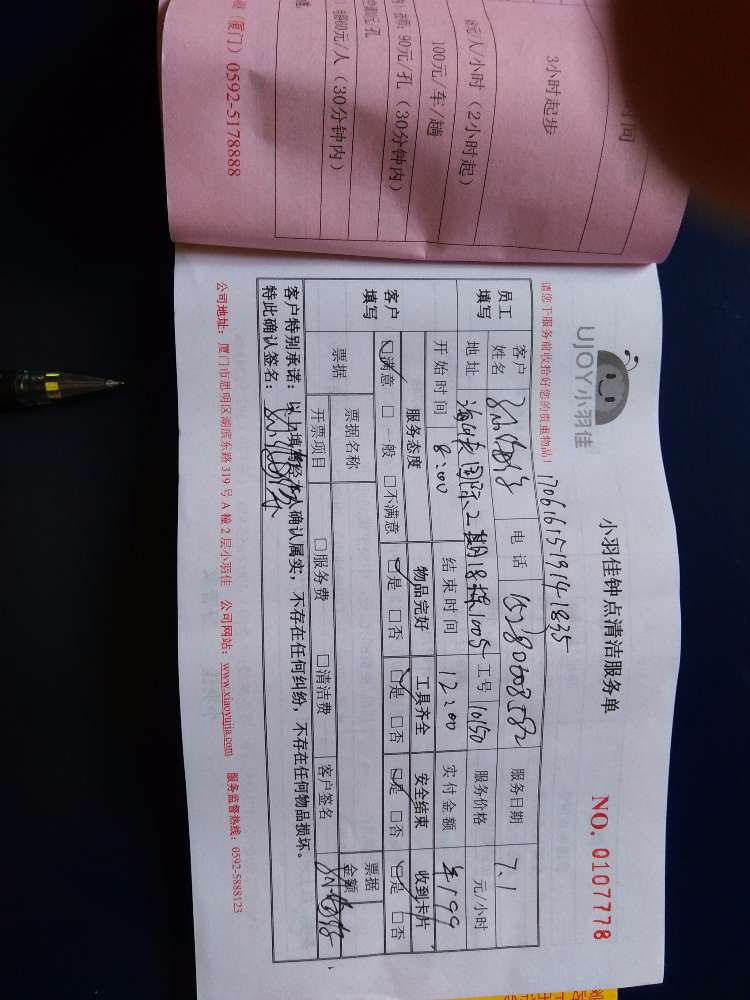 UJOY小羽佳
小羽佳钟点清洁服务单
NO. 0107778
请您于服务前收拾好您的贵重物品！
员工填写
客户姓名
电话
服务日期 7.1
地址
工号 10150
服务价格 元/小时
开始时间 8:00
结束时间 12:00
实付金额
199
客户填写
服务态度 物品完好 工具齐全 安全结束 收到卡片
☑满意 □一般 □不满意 ☑是 □否 ☑是 □否 ☑是 □否 ☑是 □否
票据
票据名称
票据金额
开票项目 □服务费 □清洁费 客户签名
客户特别承诺：以上填写经本人确认属实，不存在任何纠纷，不存在任何物品损坏。
特此确认签名：
公司地址：厦门市思明区湖滨东路 319 号 A 幢 2 层小羽佳 公司网站：www.xiaoyujia.com 服务监督热线：0592-5888123
时间
3小时起步
元/人/小时（2小时起）
100元/车/趟
90元/孔（30分钟内）
60元/人（30分钟内）
（厦门）0592-5178888